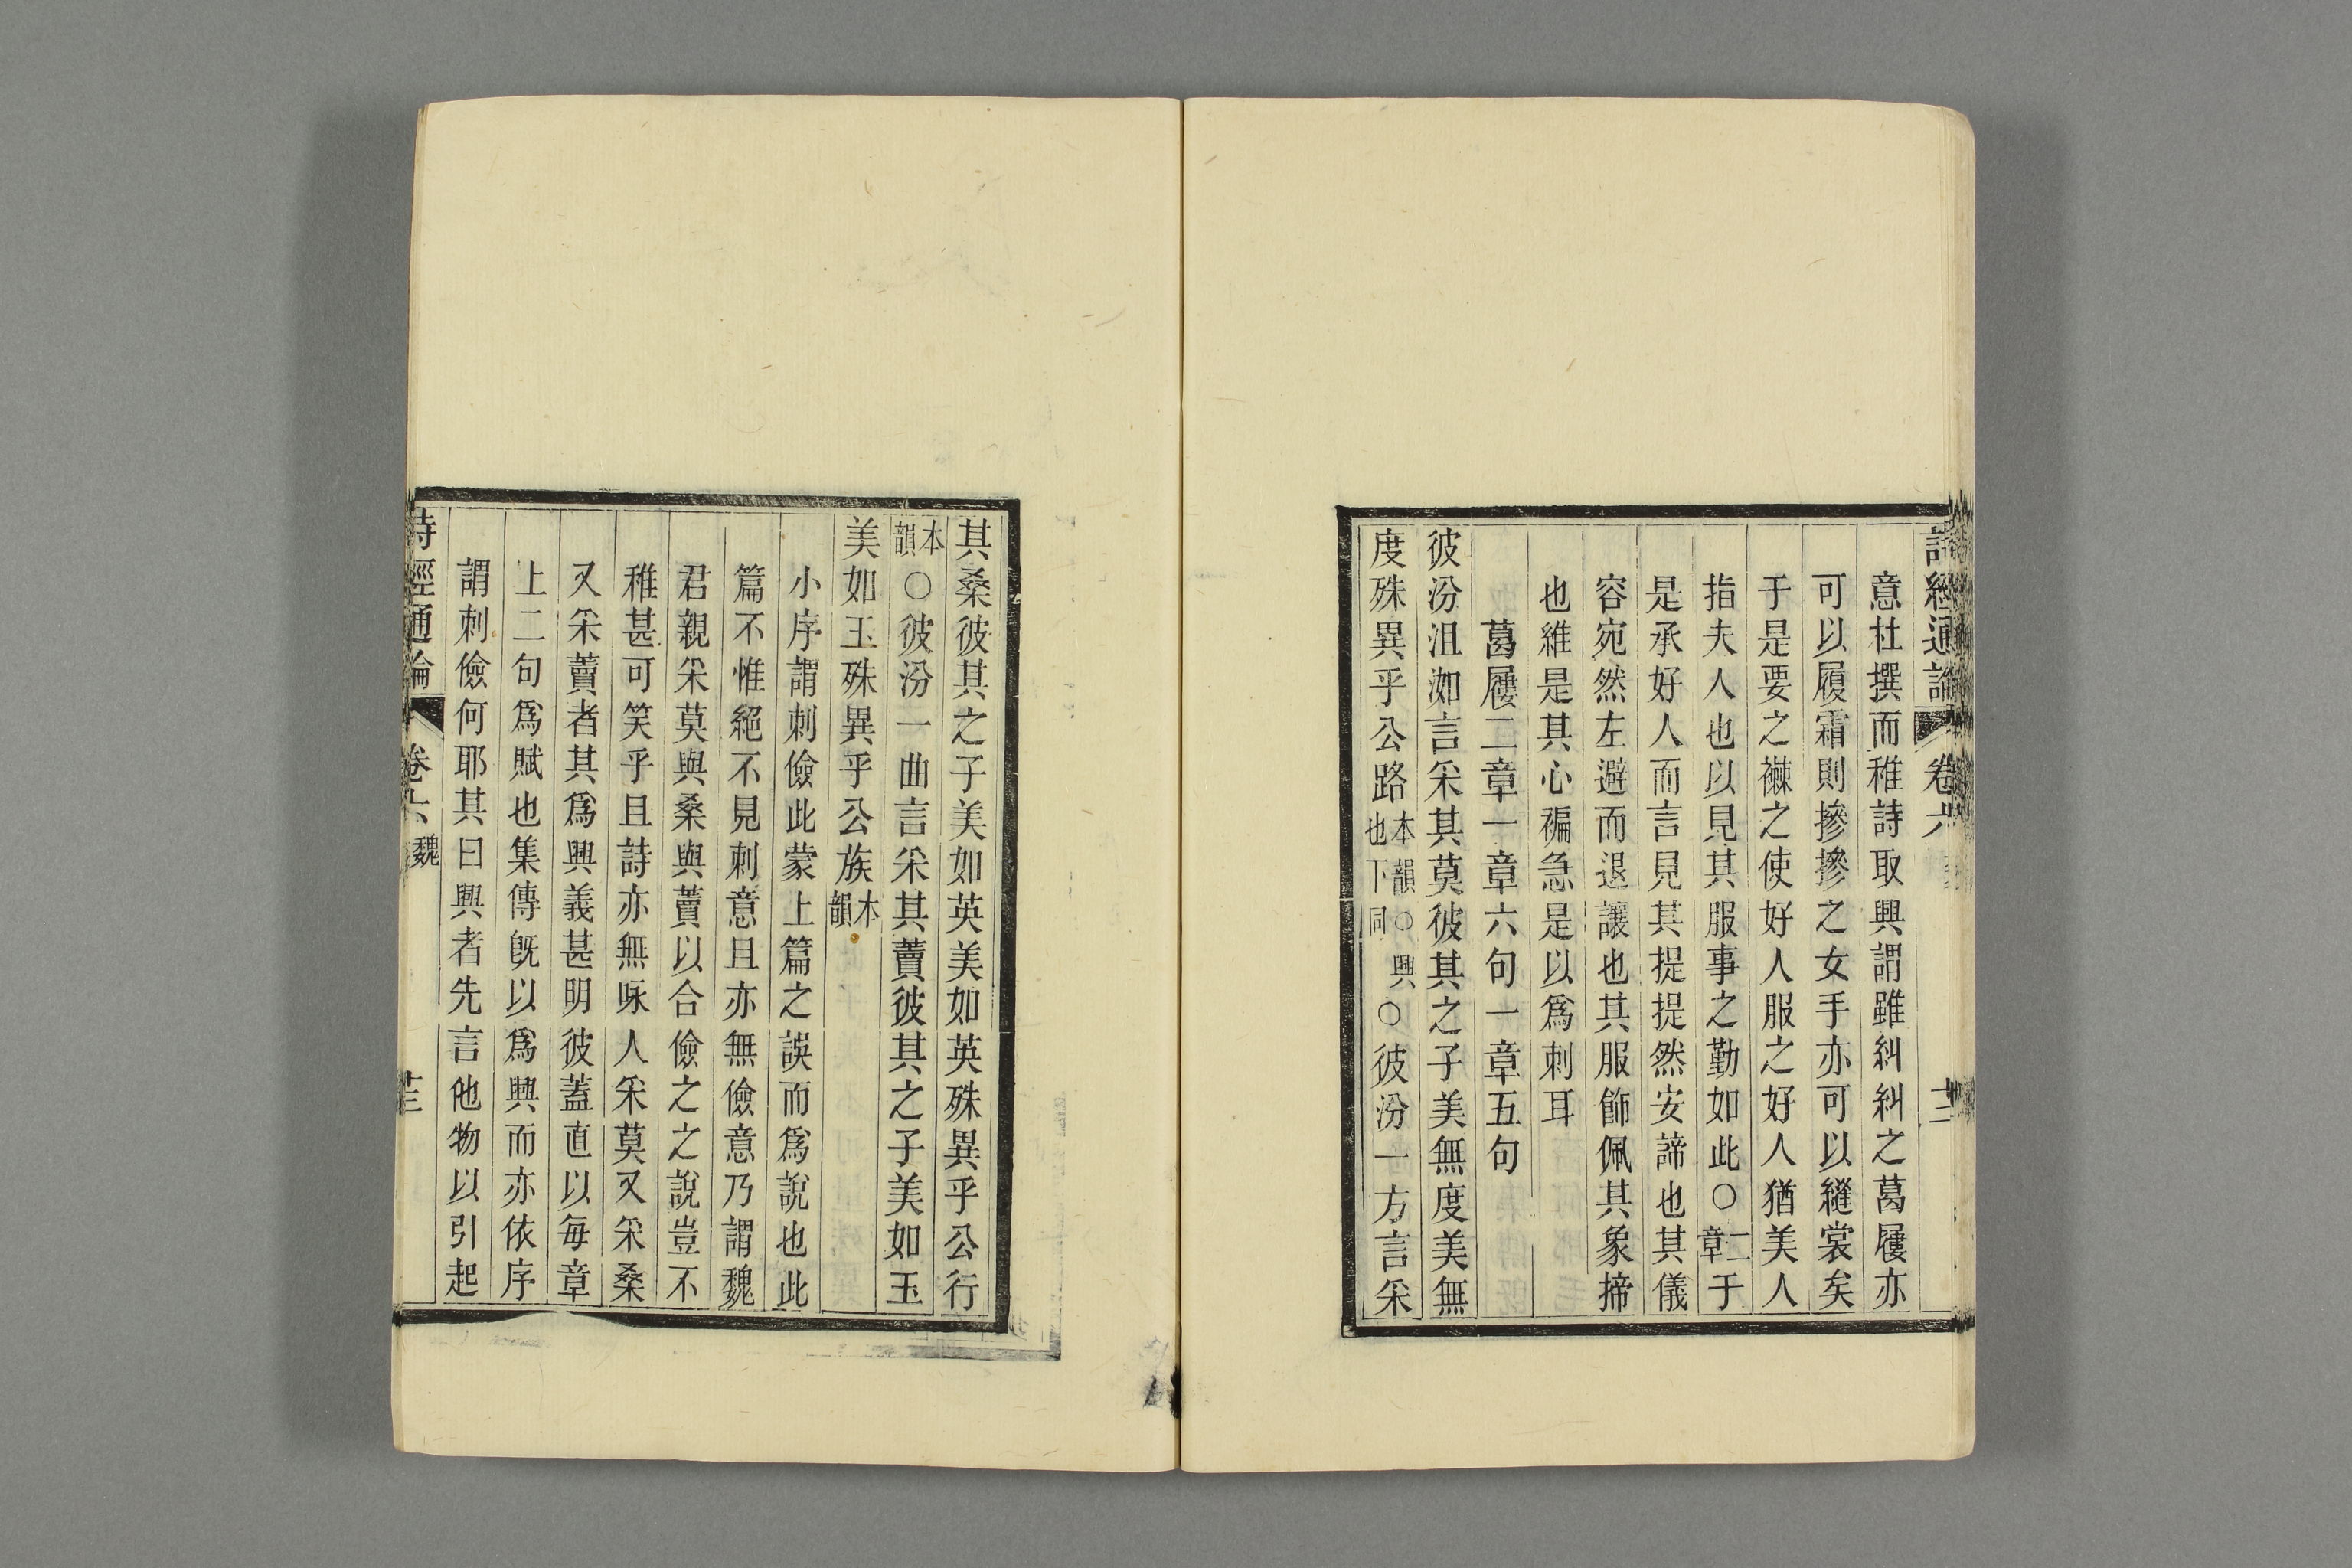 詩經通論 卷六 十二
意杜撰而稚詩取興謂雖糾糾之葛屨亦
可以履霜則摻摻之女手亦可以縫裳矣
于是要之襋之使好人服之好人猶美人
指夫人也以見其服事之勤如此○二章于
是承好人而言見其提提然安諦也其儀
容宛然左避而退讓也其服飾佩其象揥
也維是其心褊急是以爲刺耳
葛屨二章一章六句一章五句
彼汾沮洳言采其莫彼其之子美無度美無
度殊異乎公路本韻○興也下同○彼汾一方言采
其桑彼其之子美如英美如英殊異乎公行
本韻○彼汾一曲言采其藚彼其之子美如玉
美如玉殊異乎公族本韻
小序謂刺儉此蒙上篇之誤而爲說也此
篇不惟絕不見刺意且亦無儉意乃謂魏
君親采莫與桑與藚以合儉之之說豈不
稚甚可笑乎且詩亦無咏人采莫又采桑
又采藚者其爲興義甚明彼蓋直以每章
上二句爲賦也集傳旣以爲興而亦依序
謂刺儉何耶其曰興者先言他物以引起
詩經通論 卷六 魏 十三